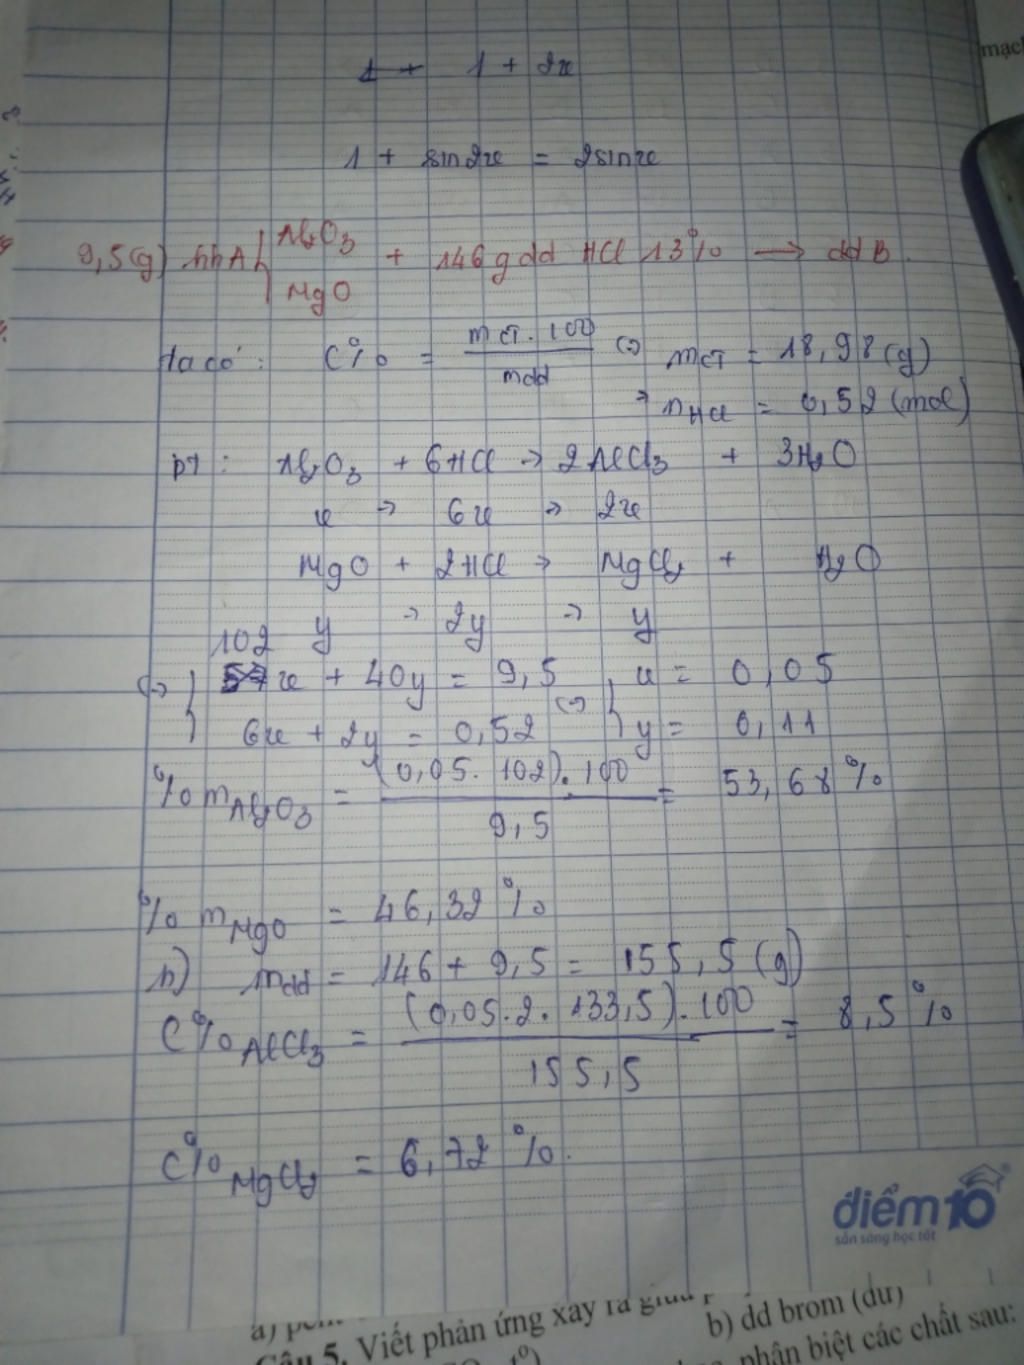 mạch
1 + 1 + 2x
1 + sin2x = 2sinx
9,5(g) hhA { Al2O3 MgO + 146g dd HCl 13% → dd B.
Ta có: C% = mCT . 100 / mdd <=> mCT = 18,98 (g)
=> nHCl = 0,52 (mol)
pt: Al2O3 + 6HCl → 2AlCl3 + 3H2O
x → 6x → 2x
MgO + 2HCl → MgCl2 + H2O
y → 2y → y
<=> { 102x + 40y = 9,5 <=> { x = 0,05
6x + 2y = 0,52 y = 0,11
% mAl2O3 = (0,05 . 102) . 100 / 9,5 = 53,68%
% mMgO = 46,32%
b) mdd = 146 + 9,5 = 155,5 (g)
C% AlCl3 = (0,05.2.133,5).100 / 155,5 = 8,5%
C% MgCl2 = 6,72%.
điểm10
sẵn sàng học tốt
b) dd brom (dư)
Câu 5. Viết phản ứng xảy ra giữa
phân biệt các chất sau: